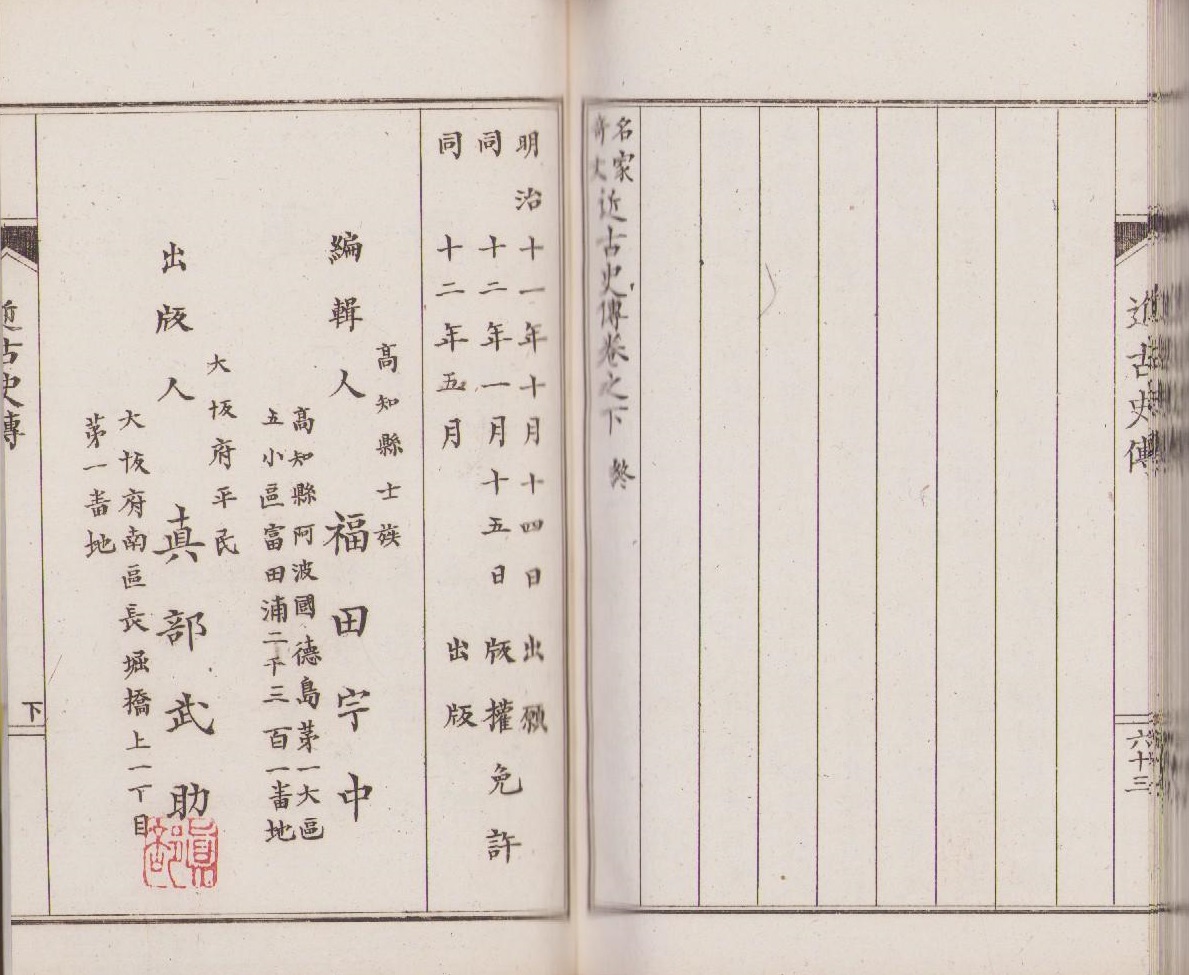 近古史傳
六十三
名家
奇文
近古史傳卷之下 終
明治十一年十月十四日 出願
同 十二年一月十五日 版權免許
同 十二年五月 出版
高知縣士族
編輯人 福田宇中
高知縣阿波國德島第一大區
五小區富田浦二千三百一番地
大坂府平民
出版人 真部武助
大坂府南區長堀橋上一丁目
第一番地
眞部
近古史傳
下